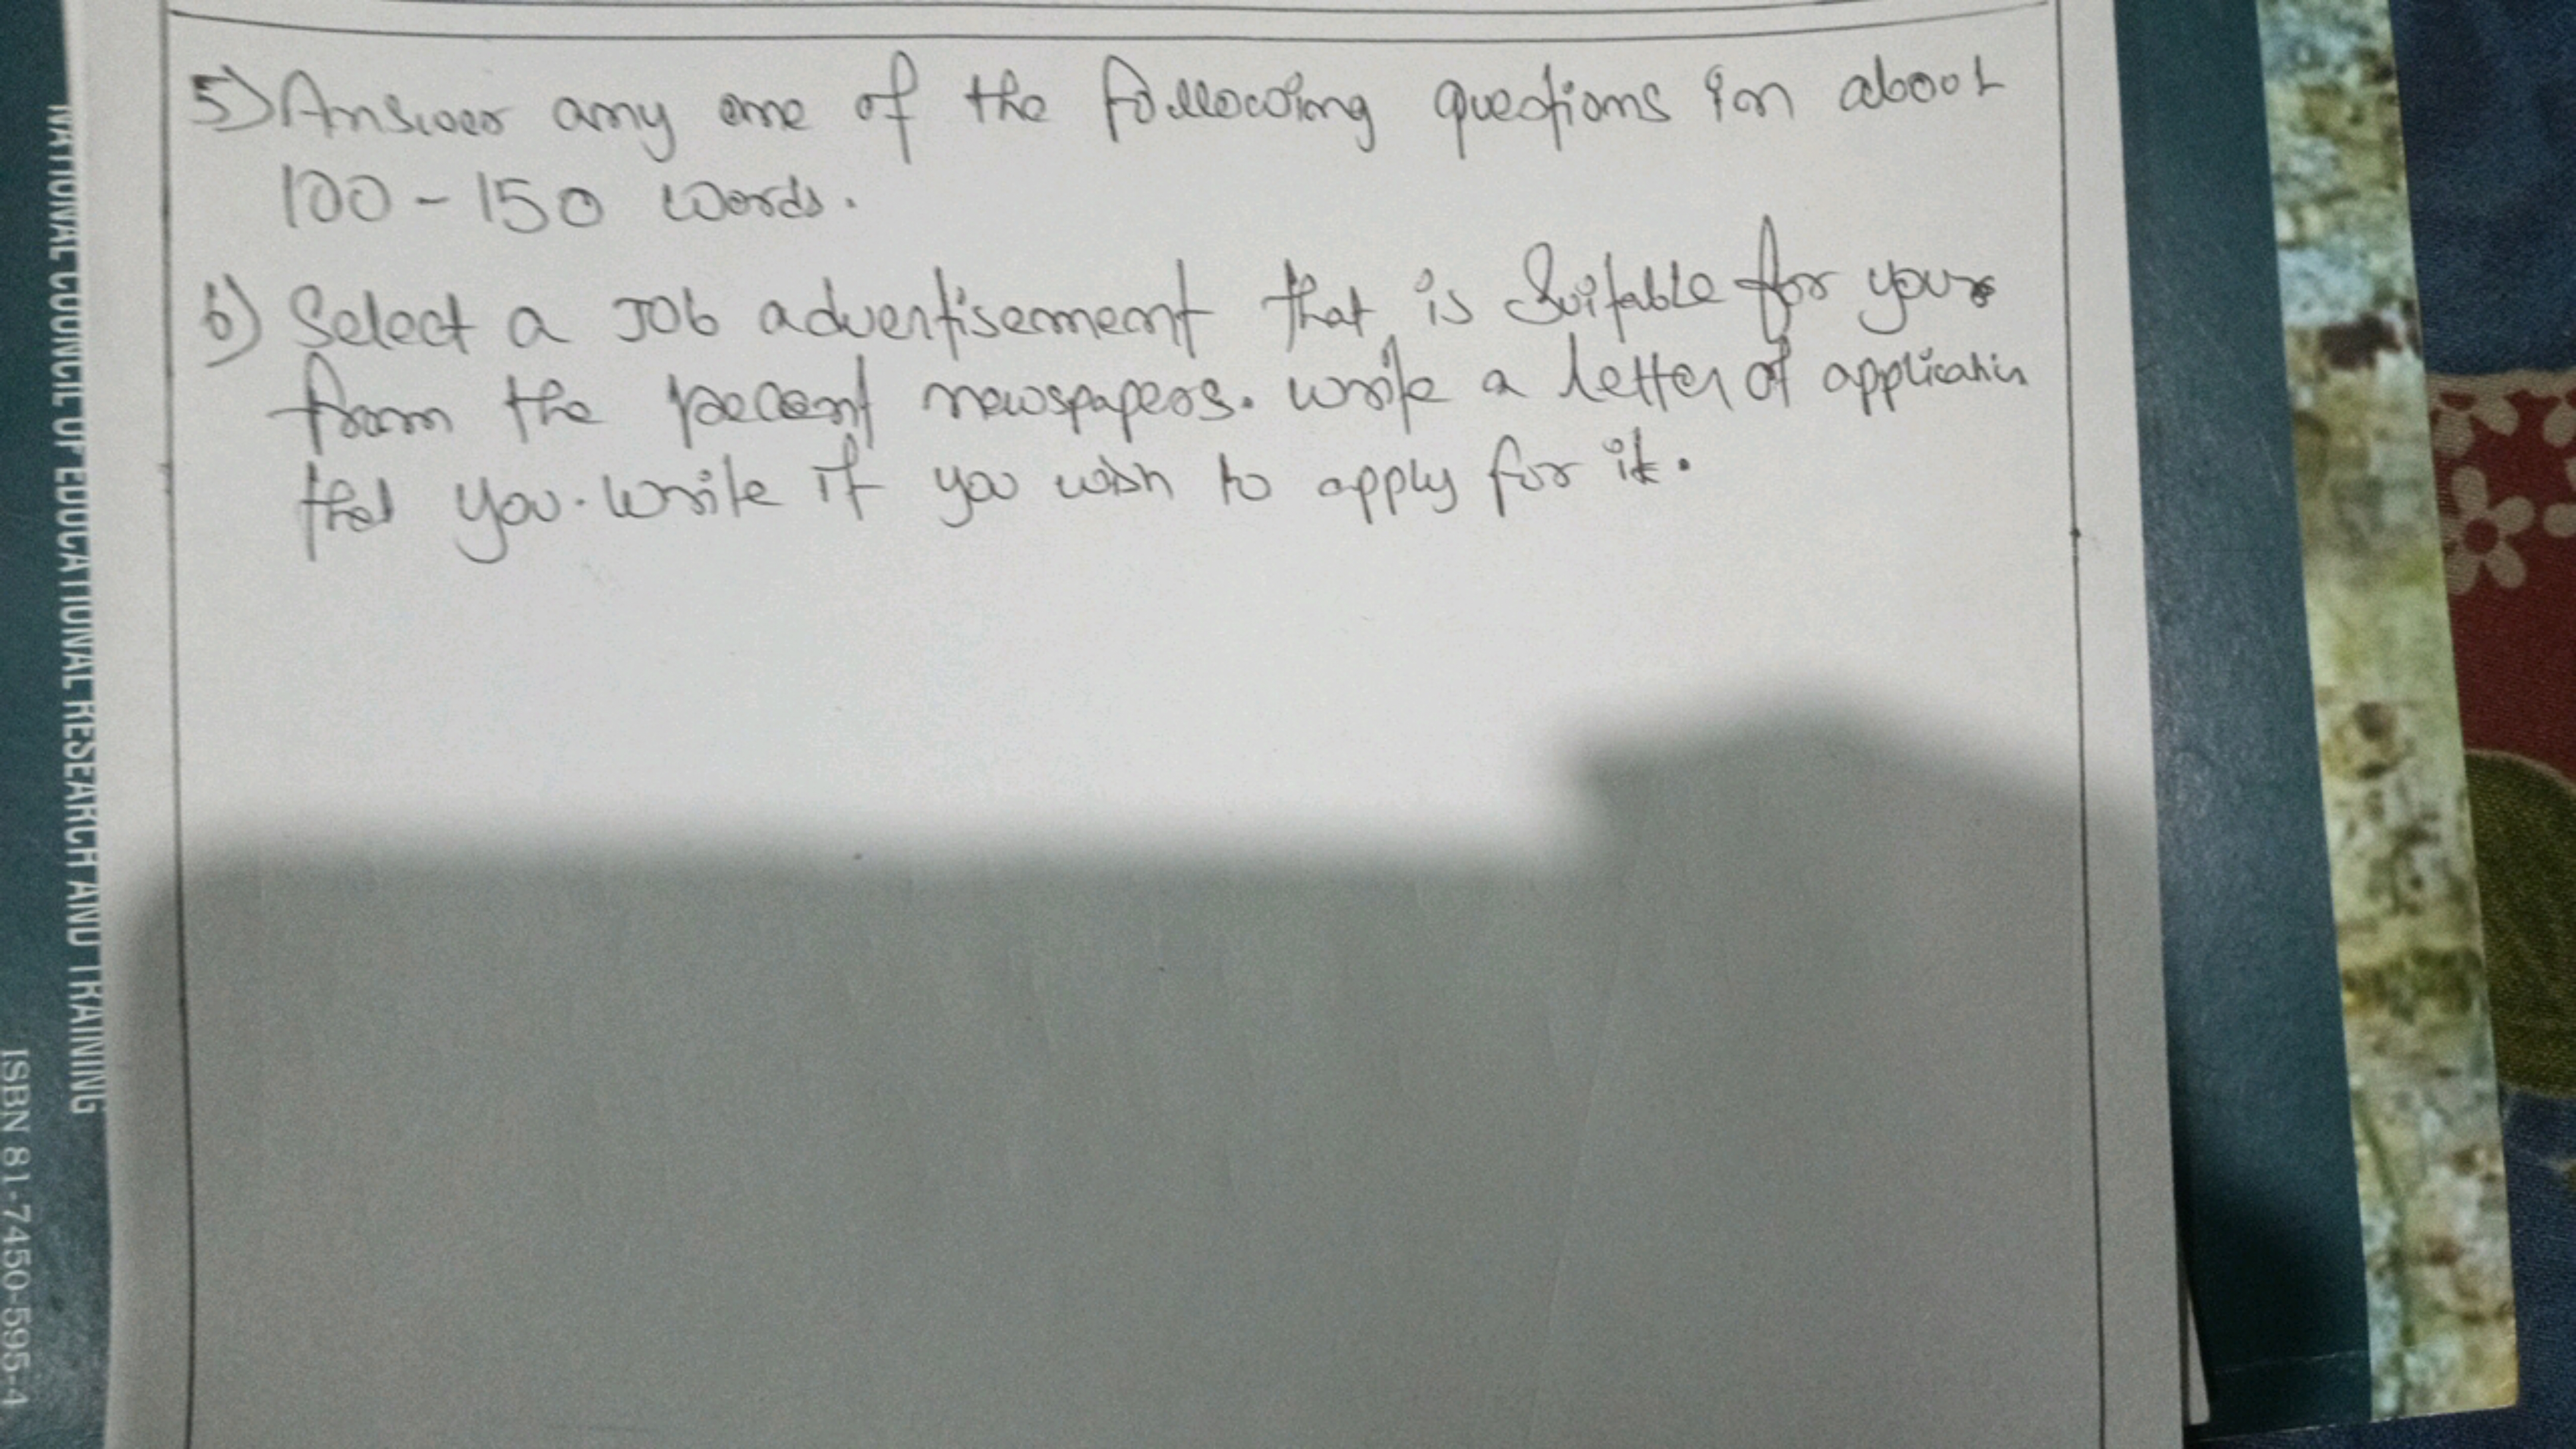 5) Answer any one of the following questions in about
100-150 words.
b) Select a Job advertisement that is Suitable for your
from the recent newspapers. write a letter of application
that you. write if you wish to apply for it.
NATIONAL COUNCIL OF EDUCATIONAL RESEARCH AND TRAINING
ISBN 81-7450-595-4